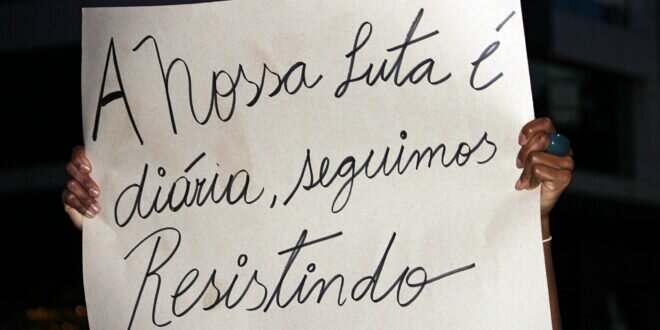 A Nossa Luta é
diária, seguimos
Resistindo